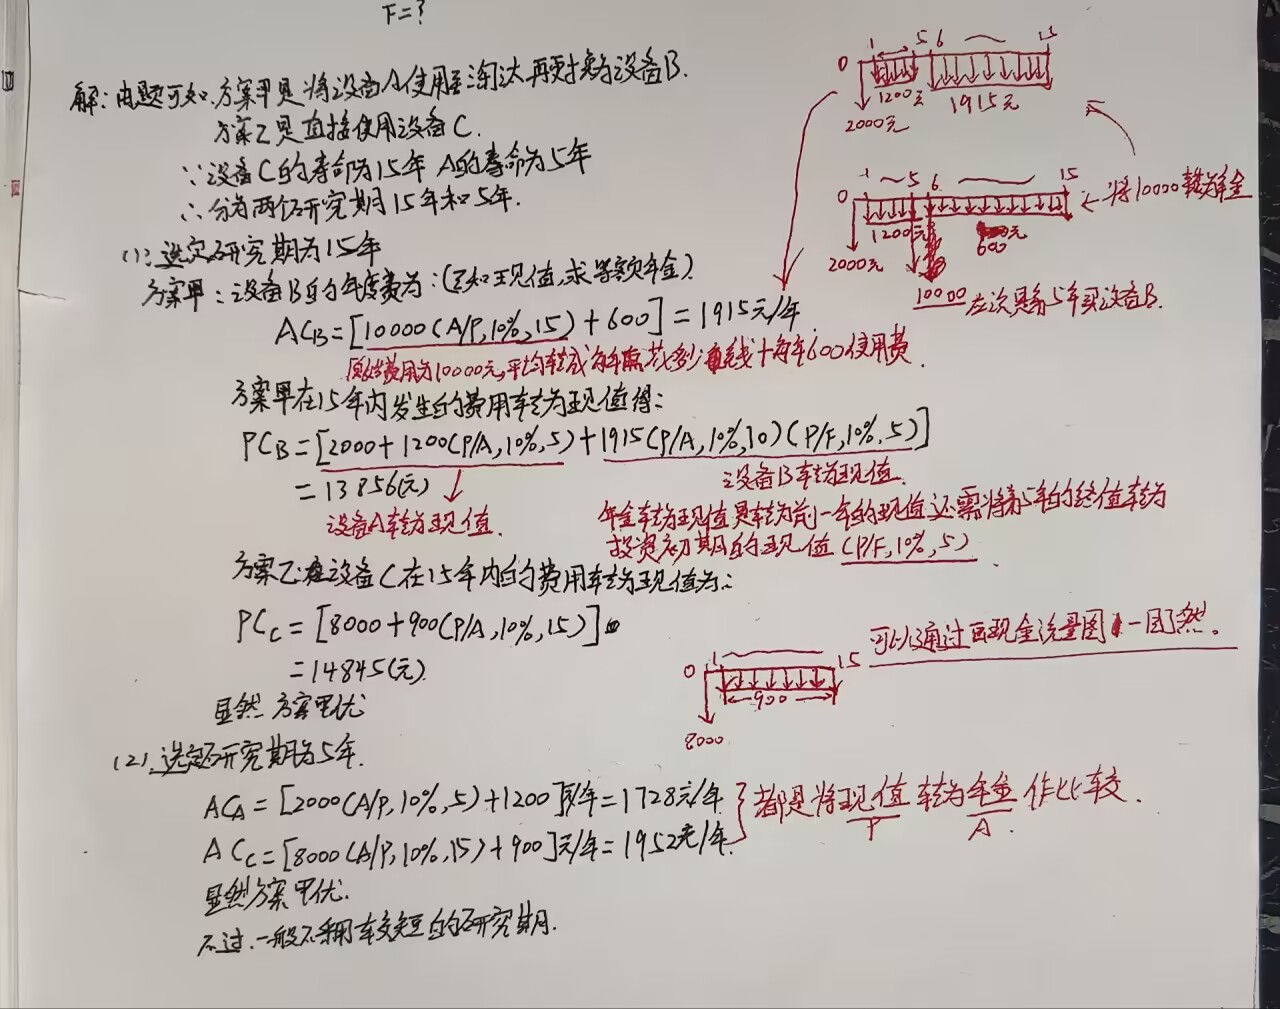 F=?
解:由题可知,方案甲是将设备A使用至淘汰再更换为设备B.
方案乙是直接使用设备C.
∵设备C的寿命为15年 A的寿命为5年
∴分为两个研究期15年和5年.
(1).选定研究期为15年
方案甲:设备B的年度费为:(已知现值,求等额年金)
ACB=[10000(A/P,10%,15)+600]=1915元/年.
原始费用为10000元,平均转成每年花多少钱+每年600使用费.
方案甲在15年内发生的费用转为现值得:
PCB=[2000+1200(P/A,10%,5)+1915(P/A,10%,10)(P/F,10%,5)]
=13856(元)
设备A转为现值.
设备B转为现值.
年金转为现值是转为前一年的现值还需将第5年的终值转为
投资初期的现值(P/F,10%,5).
方案乙设备C在15年内的费用转为现值为:
PCC=[8000+900(P/A,10%,15)]
=14845(元).
显然 方案甲优
(2).选定研究期为5年.
ACA=[2000(A/P,10%,5)+1200]元/年=1728元/年
ACC=[8000(A/P,10%,15)+900]元/年=1952元/年.
都是将现值转为年金作比较.
P A.
显然方案甲优.
不过,一般不采用较短的研究期.
0 1 5 6 15
1200元 1915元
2000元
0 1 5 6 15
←将10000转为年金
1200元 600元
2000元
10000 在次是第5年买设备B.
可以通过画现金流量图一目了然.
0 1 15
900
8000